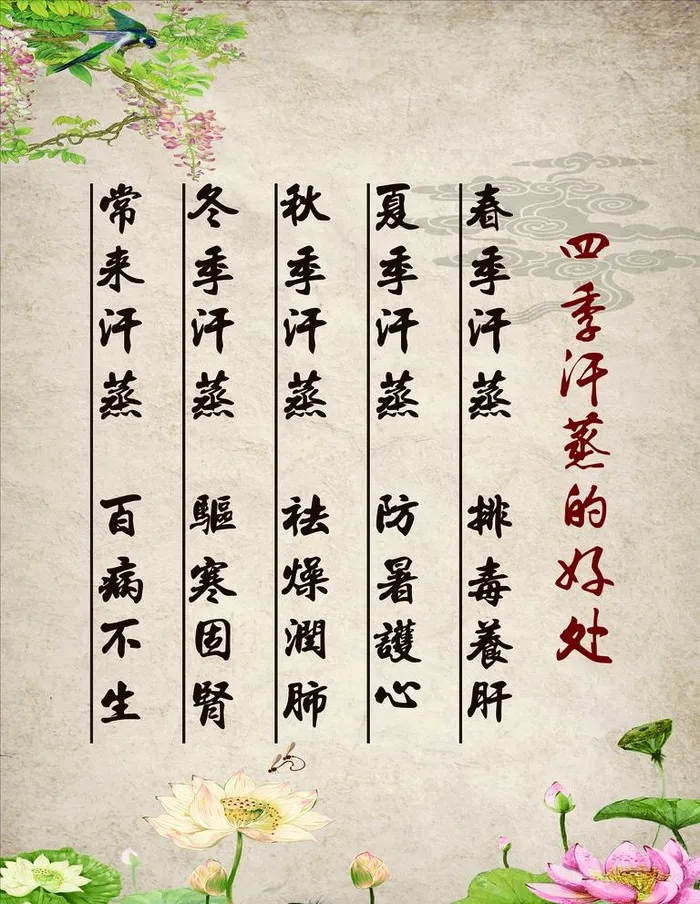 四季汗蒸的好处
春季汗蒸 排毒養肝
夏季汗蒸 防暑護心
秋季汗蒸 祛燥潤肺
冬季汗蒸 驅寒固腎
常来汗蒸 百病不生